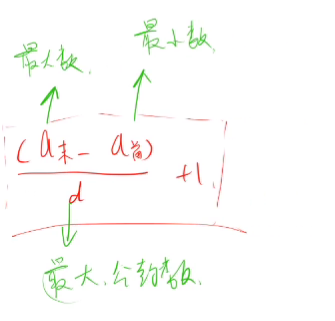 最大数
最小数
(a末 - a首)
d
+1
最大公约数